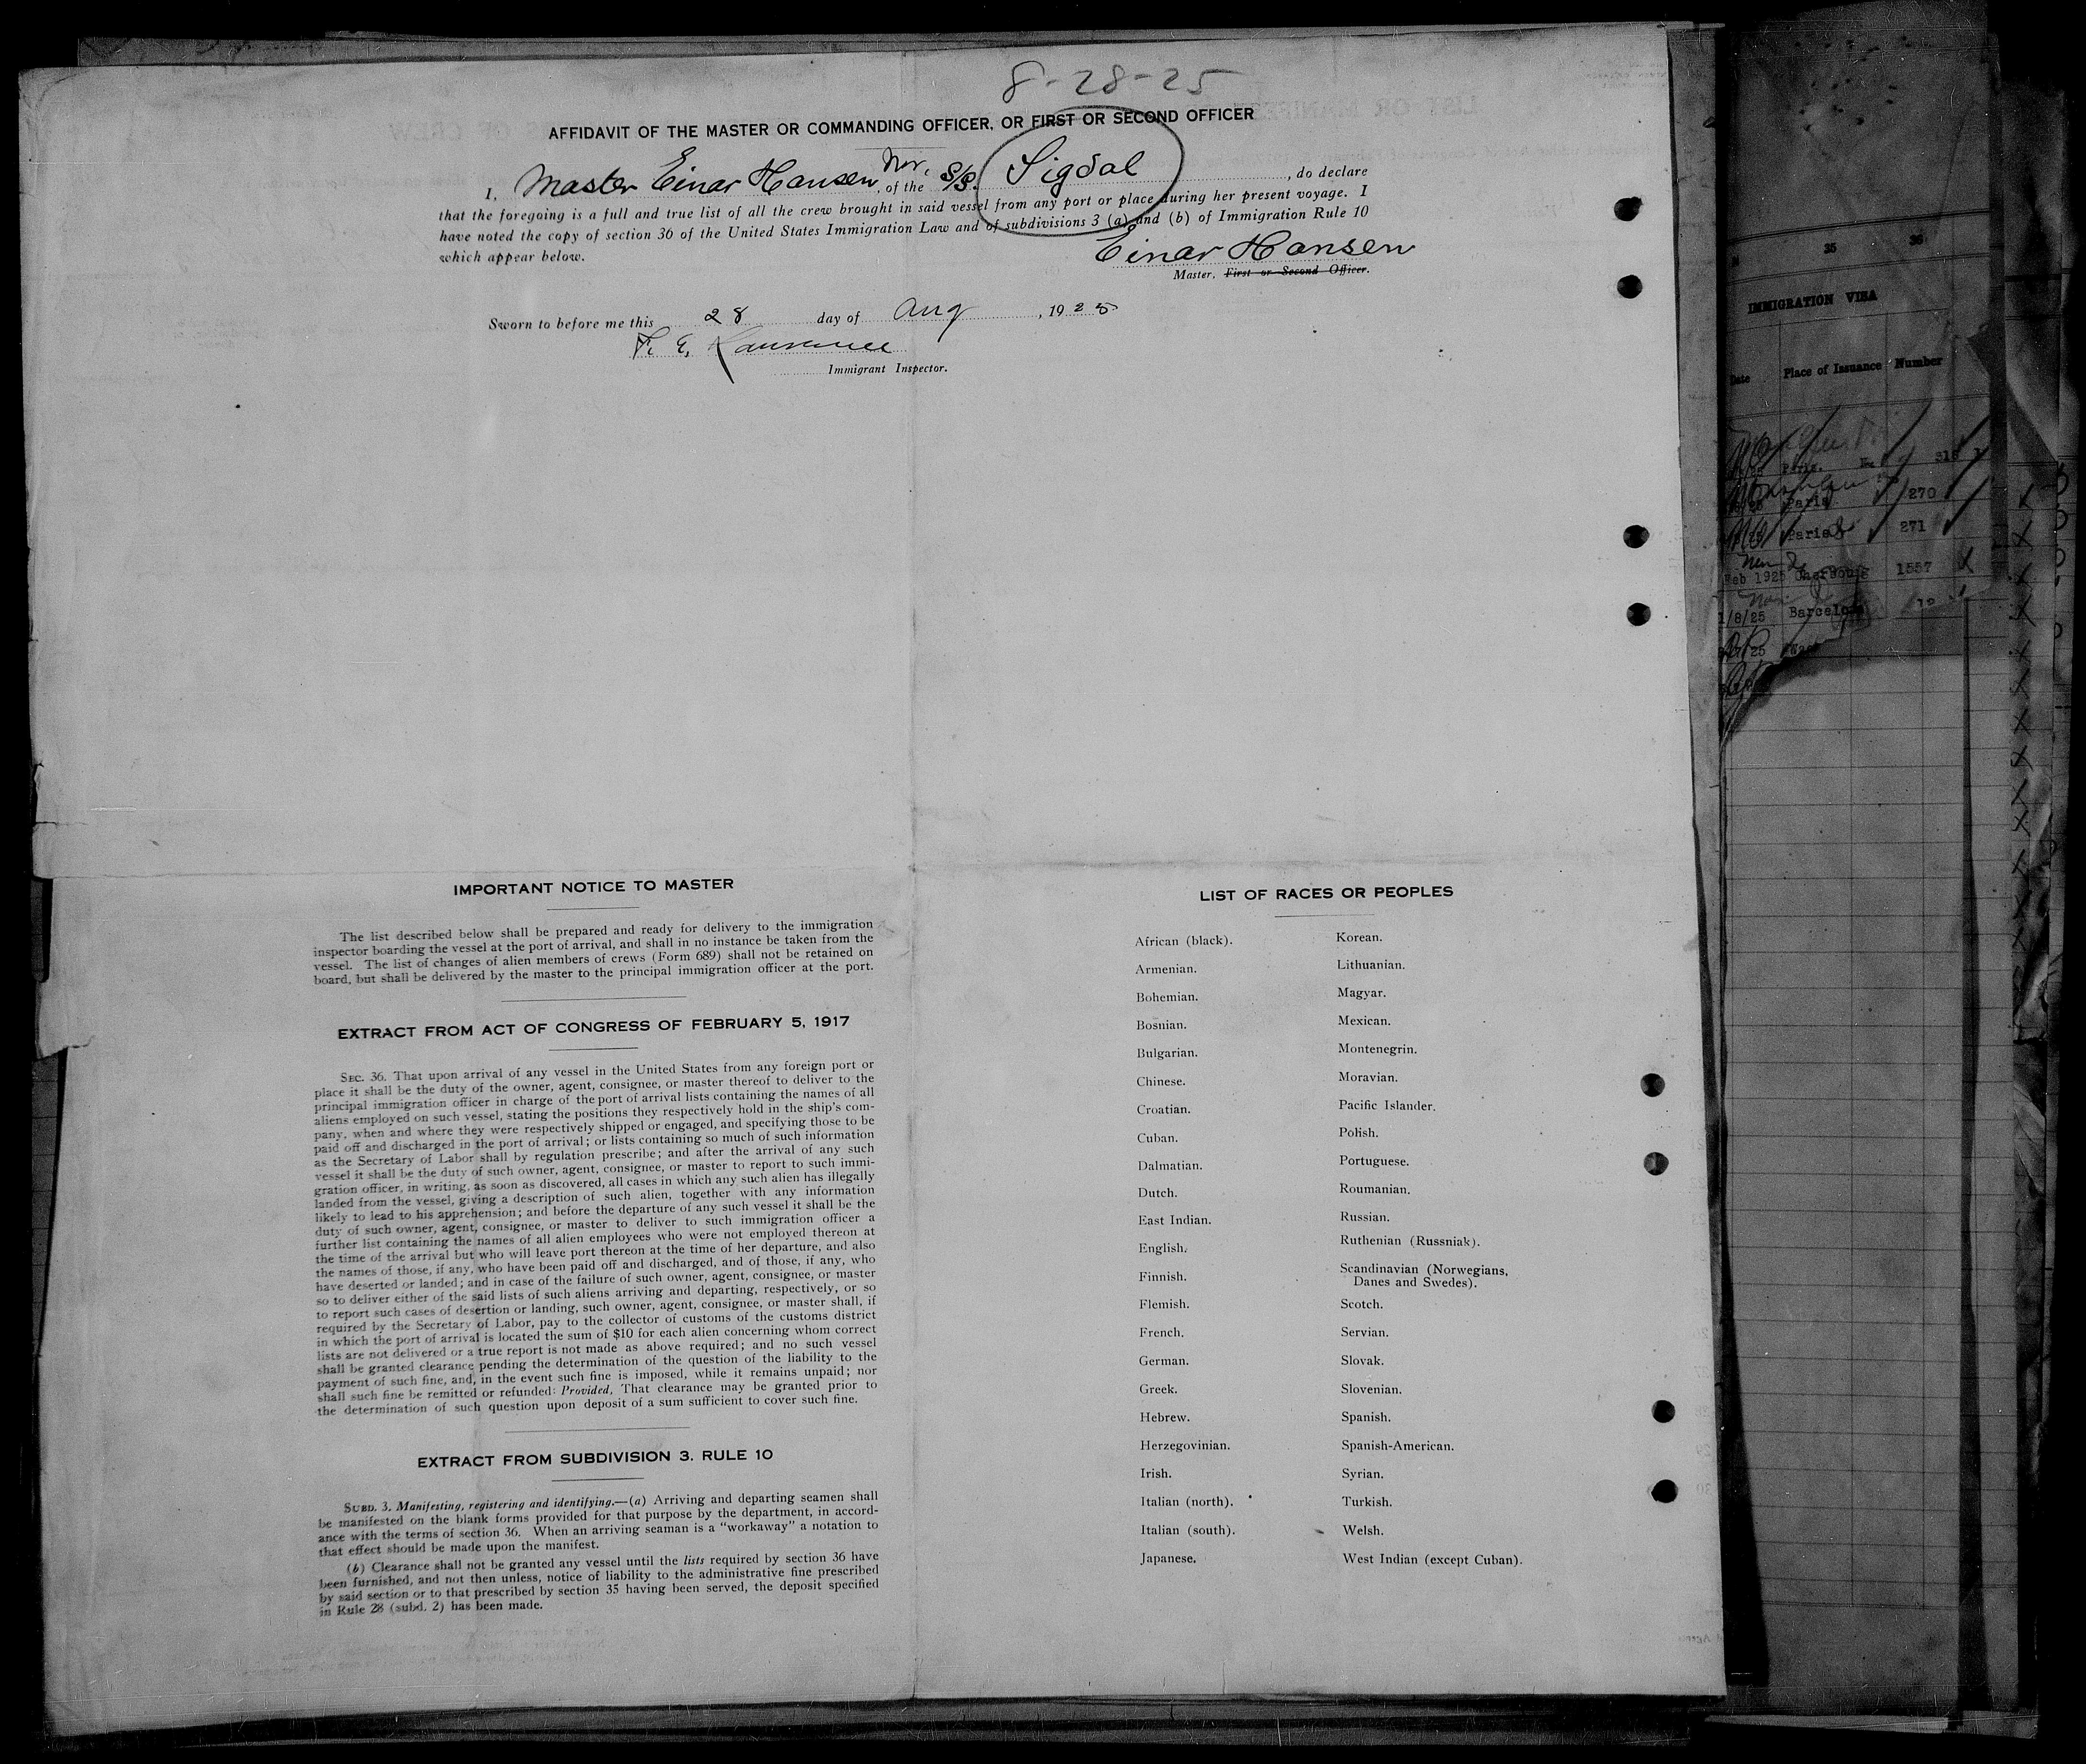 8-28-25
AFFIDAVIT OF THE MASTER OR COMMANDING OFFICER, OR FIRST OR SECOND OFFICER
I, Master Einar Hansen, of the Nor. S/S. Sigdal, do declare
that the foregoing is a full and true list of all the crew brought in said vessel from any port or place during her present voyage. I
have noted the copy of section 36 of the United States Immigration Law and of subdivisions 3 (a) and (b) of Immigration Rule 10
which appear below.
Einar Hansen
Master, First or Second Officer.
Sworn to before me this 28 day of Aug, 1925
Immigrant Inspector.
IMPORTANT NOTICE TO MASTER
The list described below shall be prepared and ready for delivery to the immigration
inspector boarding the vessel at the port of arrival, and shall in no instance be taken from the
vessel. The list of changes of alien members of crews (Form 689) shall not be retained on
board, but shall be delivered by the master to the principal immigration officer at the port.
EXTRACT FROM ACT OF CONGRESS OF FEBRUARY 5, 1917
SEC. 36. That upon arrival of any vessel in the United States from any foreign port or
place it shall be the duty of the owner, agent, consignee, or master thereof to deliver to the
principal immigration officer in charge of the port of arrival lists containing the names of all
aliens employed on such vessel, stating the positions they respectively hold in the ship's com-
pany, when and where they were respectively shipped or engaged, and specifying those to be
paid off and discharged in the port of arrival; or lists containing so much of such information
as the Secretary of Labor shall by regulation prescribe; and after the arrival of any such
vessel it shall be the duty of such owner, agent, consignee, or master to report to such immi-
gration officer, in writing, as soon as discovered, all cases in which any such alien has illegally
landed from the vessel, giving a description of such alien, together with any information
likely to lead to his apprehension; and before the departure of any such vessel it shall be the
duty of such owner, agent, consignee, or master to deliver to such immigration officer a
further list containing the names of all alien employees who were not employed thereon at
the time of the arrival but who will leave port thereon at the time of her departure, and also
the names of those, if any, who have been paid off and discharged, and of those, if any, who
have deserted or landed; and in case of the failure of such owner, agent, consignee, or master
so to deliver either of the said lists of such aliens arriving and departing, respectively, or so
to report such cases of desertion or landing, such owner, agent, consignee, or master shall, if
required by the Secretary of Labor, pay to the collector of customs of the customs district
in which the port of arrival is located the sum of $10 for each alien concerning whom correct
lists are not delivered or a true report is not made as above required; and no such vessel
shall be granted clearance pending the determination of the question of the liability to the
payment of such fine, and, in the event such fine is imposed, while it remains unpaid; nor
shall such fine be remitted or refunded: Provided, That clearance may be granted prior to
the determination of such question upon deposit of a sum sufficient to cover such fine.
EXTRACT FROM SUBDIVISION 3, RULE 10
SUBD. 3. Manifesting, registering and identifying.—(a) Arriving and departing seamen shall
be manifested on the blank forms provided for that purpose by the department, in accord-
ance with the terms of section 36. When an arriving seaman is a "workaway" a notation to
that effect should be made upon the manifest.
(b) Clearance shall not be granted any vessel until the lists required by section 36 have
been furnished, and not then unless, notice of liability to the administrative fine prescribed
by said section or to that prescribed by section 35 having been served, the deposit specified
in Rule 28 (subd. 2) has been made.
LIST OF RACES OR PEOPLES
African (black).
Armenian.
Bohemian.
Bosnian.
Bulgarian.
Chinese.
Croatian.
Cuban.
Dalmatian.
Dutch.
East Indian.
English.
Finnish.
Flemish.
French.
German.
Greek.
Hebrew.
Herzegovinian.
Irish.
Italian (north).
Italian (south).
Japanese.
Korean.
Lithuanian.
Magyar.
Mexican.
Montenegrin.
Moravian.
Pacific Islander.
Polish.
Portuguese.
Roumanian.
Russian.
Ruthenian (Russniak).
Scandinavian (Norwegians,
Danes and Swedes).
Scotch.
Servian.
Slovak.
Slovenian.
Spanish.
Spanish-American.
Syrian.
Turkish.
Welsh.
West Indian (except Cuban).
35 36
IMMIGRATION VISA
Date Place of Issuance Number
Paris.
Paris 270
Paris 271
Feb 1925 Cherbourg 1557
1/8/25 Barcelona